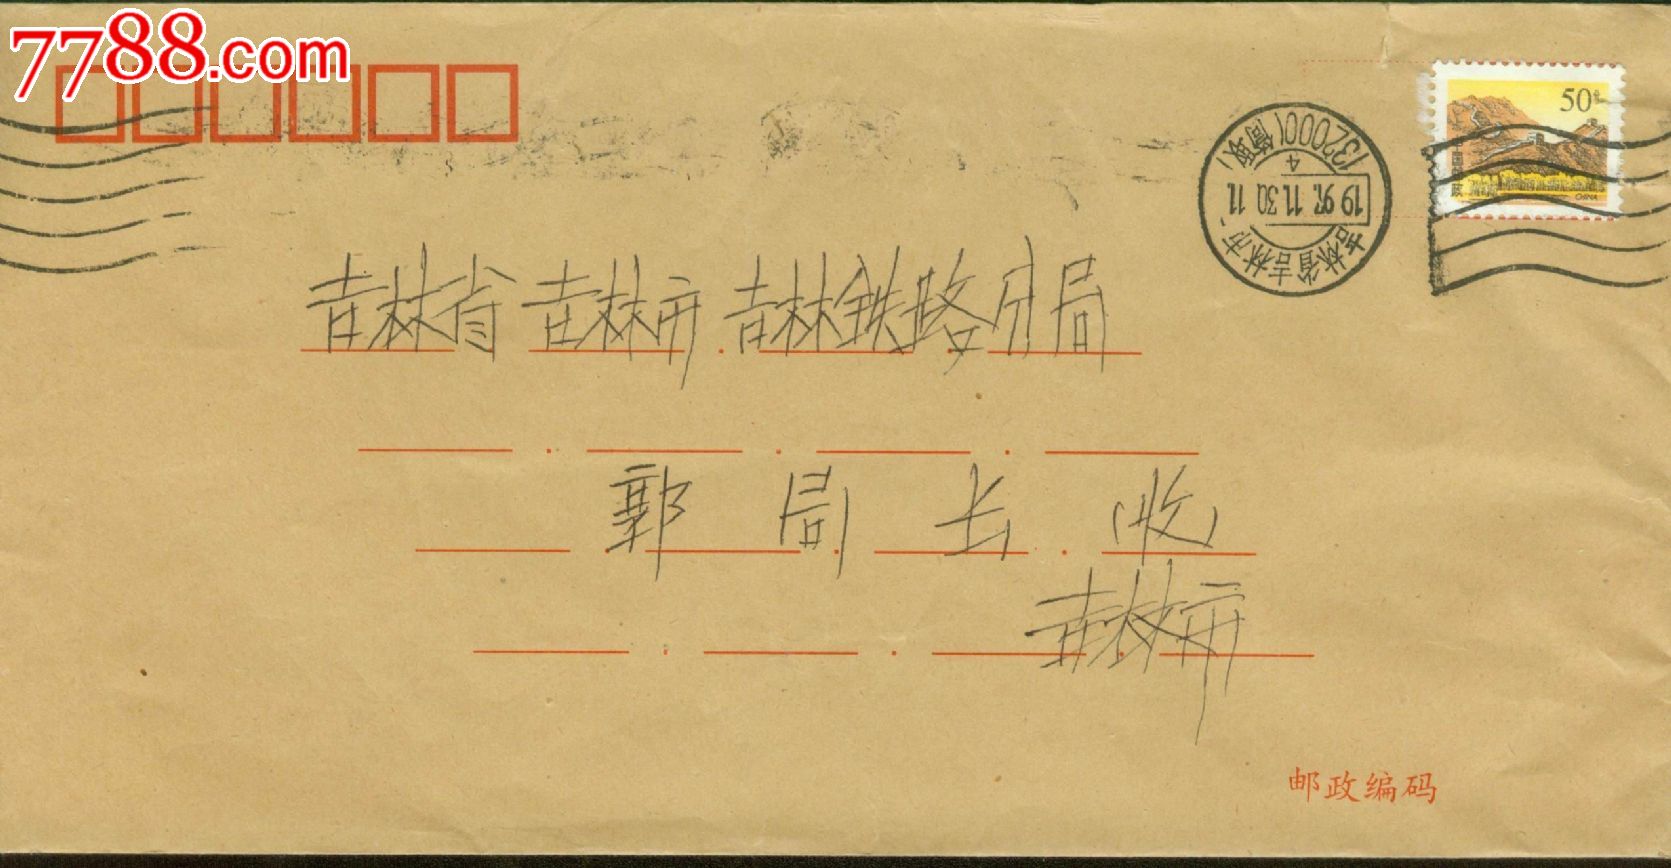 7788.com
50分
中国邮政
CHINA
132000(筒取)
4
1997.11.30.11
吉林省吉林市
吉林省 吉林市 吉林铁路分局
郭 局 长 (收)
吉林市
邮政编码